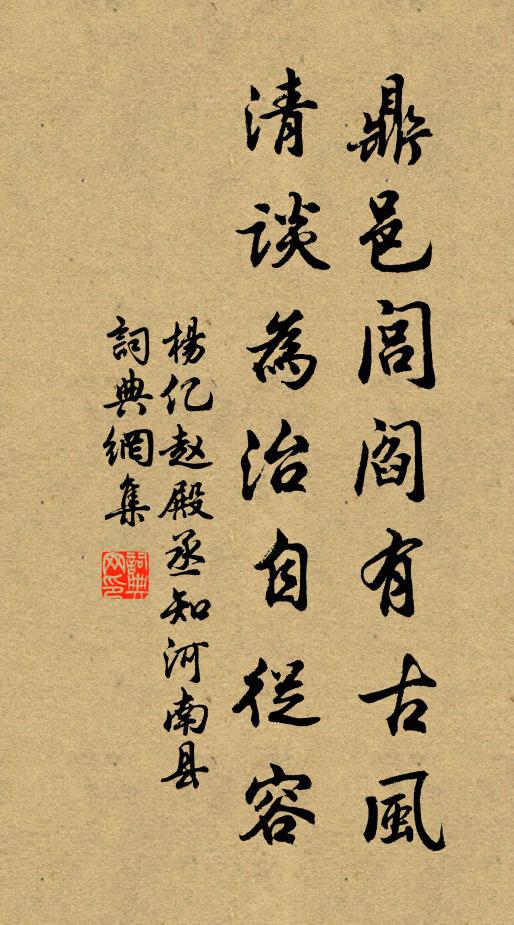 鼎邑閭閻有古風
清談為治自從容
楊亿赵殿丞知河南县
詞典網集
詞典网印